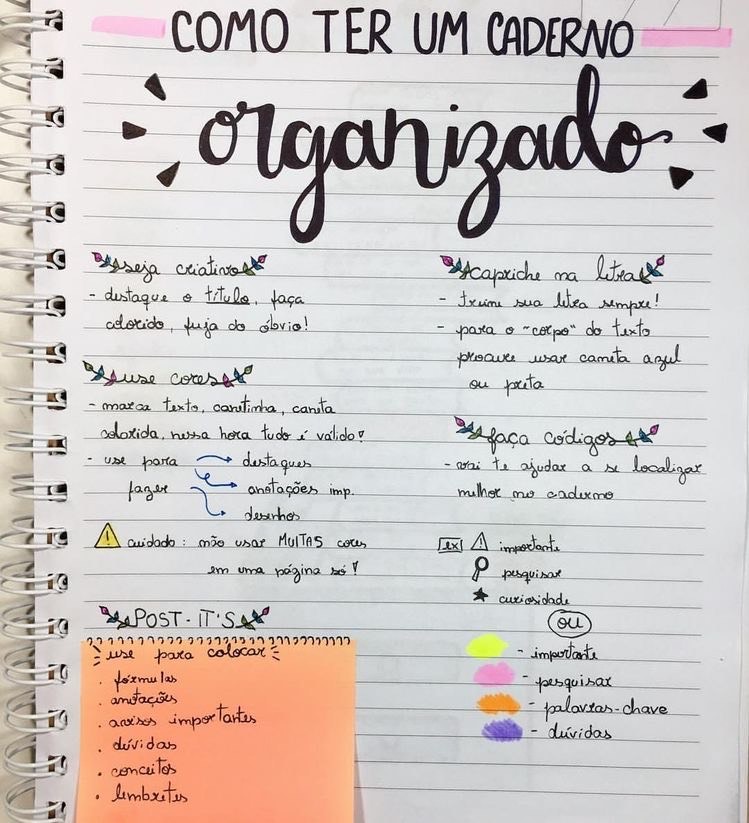 COMO TER UM CADERNO
organizado
seja criativo
- destaque o título, faça
colorido, fuja do óbvio!
use cores
- marca texto, canetinha, caneta
colorida, nessa hora tudo é válido!
- use para
fazer
destaques
anotações imp.
desenhos
cuidado: não usar MUITAS cores
em uma página só!
POST-IT'S
use para colocar
. fórmulas
. anotações
. avisos importantes
. dúvidas
. conceitos
. lembretes
capriche na letra
- treine sua letra sempre!
- para o "corpo" do texto
procure usar caneta azul
ou preta
faça códigos
- vai te ajudar a se localizar
melhor no caderno
ex
importante
pesquisar
curiosidade
ou
- importante
- pesquisar
- palavras-chave
- dúvidas